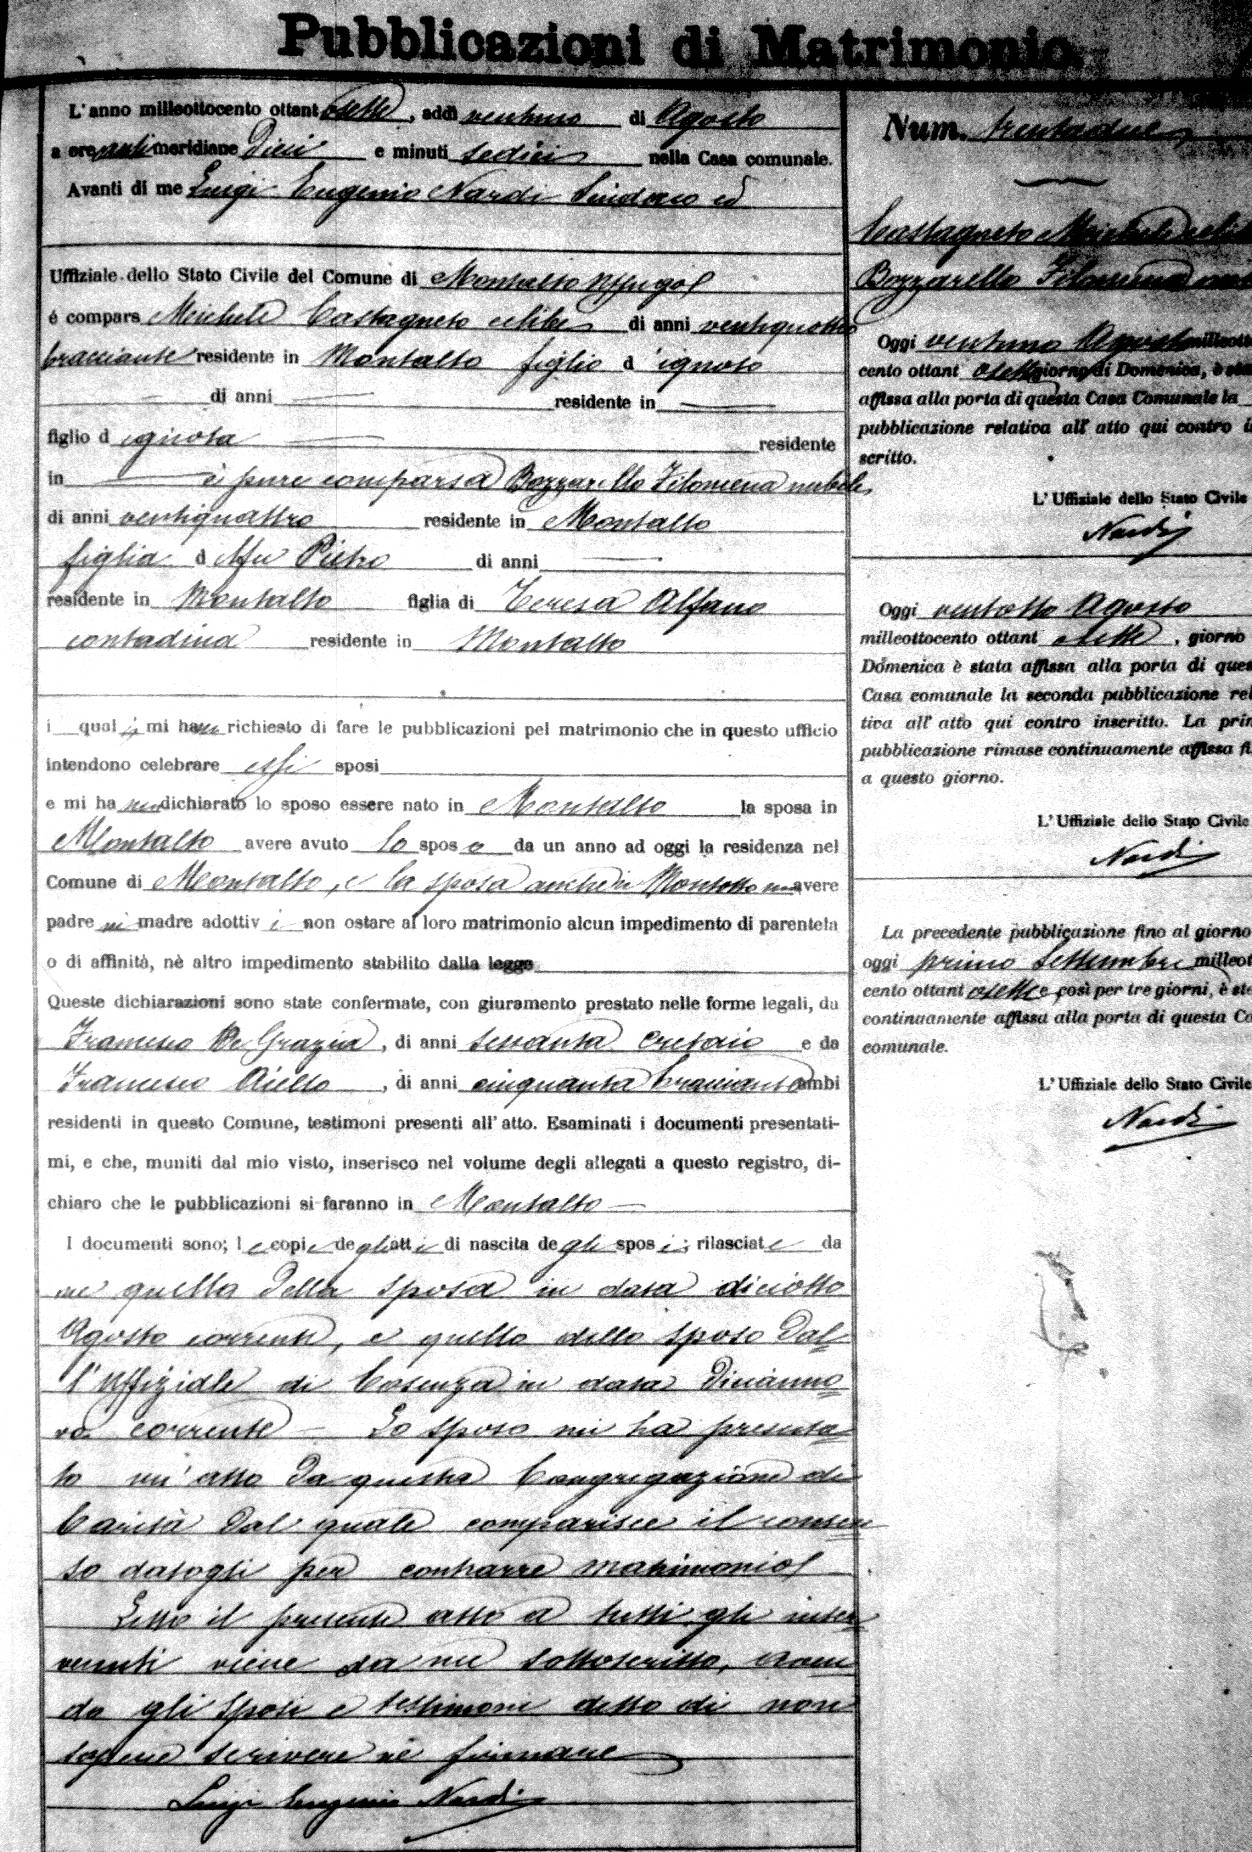 Pubblicazioni di Matrimonio.
L'anno milleottocento ottantasette, addì ventuno di Agosto
a ore antimeridiane Dieci e minuti sedici nella Casa comunale.
Avanti di me Luigi Eugenio Nardi Sindaco ed
Uffiziale dello Stato Civile del Comune di Montalto Uffugo
é comparso Michele Castagneto celibe di anni ventiquattro
bracciante residente in Montalto figlio d'ignoto
di anni residente in
figlio d ignota residente
in è pure comparsa Bozzarello Filomena nubile
di anni ventiquattro residente in Montalto
figlia d el fu Pietro di anni
residente in Montalto figlia di Teresa Alfano
contadina residente in Montalto
i quali mi hanno richiesto di fare le pubblicazioni pel matrimonio che in questo ufficio
intendono celebrare essi sposi
e mi hanno dichiarato lo sposo essere nato in Montalto la sposa in
Montalto avere avuto lo sposo da un anno ad oggi la residenza nel
Comune di Montalto, e la sposa anche in Montalto non avere
padre nè madre adottivi non ostare al loro matrimonio alcun impedimento di parentela
o di affinità, nè altro impedimento stabilito dalla legge
Queste dichiarazioni sono state confermate, con giuramento prestato nelle forme legali, da
Francesco De Grazia, di anni sessanta cretaio e da
Francesco Aiello, di anni cinquanta bracciante ambi
residenti in questo Comune, testimoni presenti all'atto. Esaminati i documenti presentati-
mi, e che, muniti dal mio visto, inserisco nel volume degli allegati a questo registro, di-
chiaro che le pubblicazioni si faranno in Montalto
I documenti sono; le copie degli atti di nascita degli sposi; rilasciate da
me quella della sposa in data diciotto
Agosto corrente, e quella dello sposo dal=
l'Uffiziale di Cosenza in data dicianno=
ve corrente - Lo sposo mi ha presenta=
to un'atto da questa Congregazione di
Carità dal quale comparisce il consen=
so datogli per contrarre matrimonio
Letto il presente atto a tutti gli inter=
venuti viene da me sottoscritto, aven
do gli sposi e testimoni detto di non
sapere scrivere nè firmare
Luigi Eugenio Nardi
Num. trentadue
Castagneto Michele
Bozzarello Filomena
Oggi ventuno Agosto milleotto
cento ottantasette giorno di Domenica, è stata
affissa alla porta di questa Casa Comunale la
pubblicazione relativa all'atto qui contro i
scritto.
L'Uffiziale dello Stato Civile
Nardi
Oggi ventotto Agosto
milleottocento ottantasette, giorno
Domenica è stata affissa alla porta di ques
Casa comunale la seconda pubblicazione rel
tiva all'atto qui contro inscritto. La prim
pubblicazione rimase continuamente affissa fi
a questo giorno.
L'Uffiziale dello Stato Civile
Nardi
La precedente pubblicazione fino al giorno
oggi primo Settembre milleot
cento ottantasette e così per tre giorni, è sta
continuamente affissa alla porta di questa Ca
comunale.
L'Uffiziale dello Stato Civile
Nardi